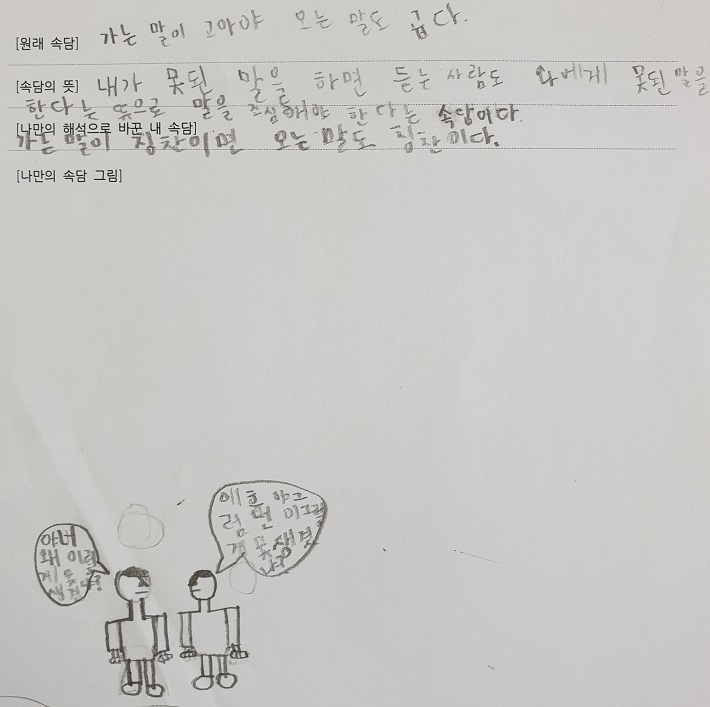 [원래 속담] 가는 말이 고와야 오는 말도 곱다.
[속담의 뜻] 내가 못된 말을 하면 듣는 사람도 나에게 못된 말을
한다는 뜻으로 말을 조심해야 한다는 속담이다.
[나만의 해석으로 바꾼 내 속담]
가는 말이 칭찬이면 오는 말도 칭찬이다.
[나만의 속담 그림]
야너
왜 이렇
게 못
생겼냐?
에휴 야그
럼 넌 이그렇
게 못생겼
냐